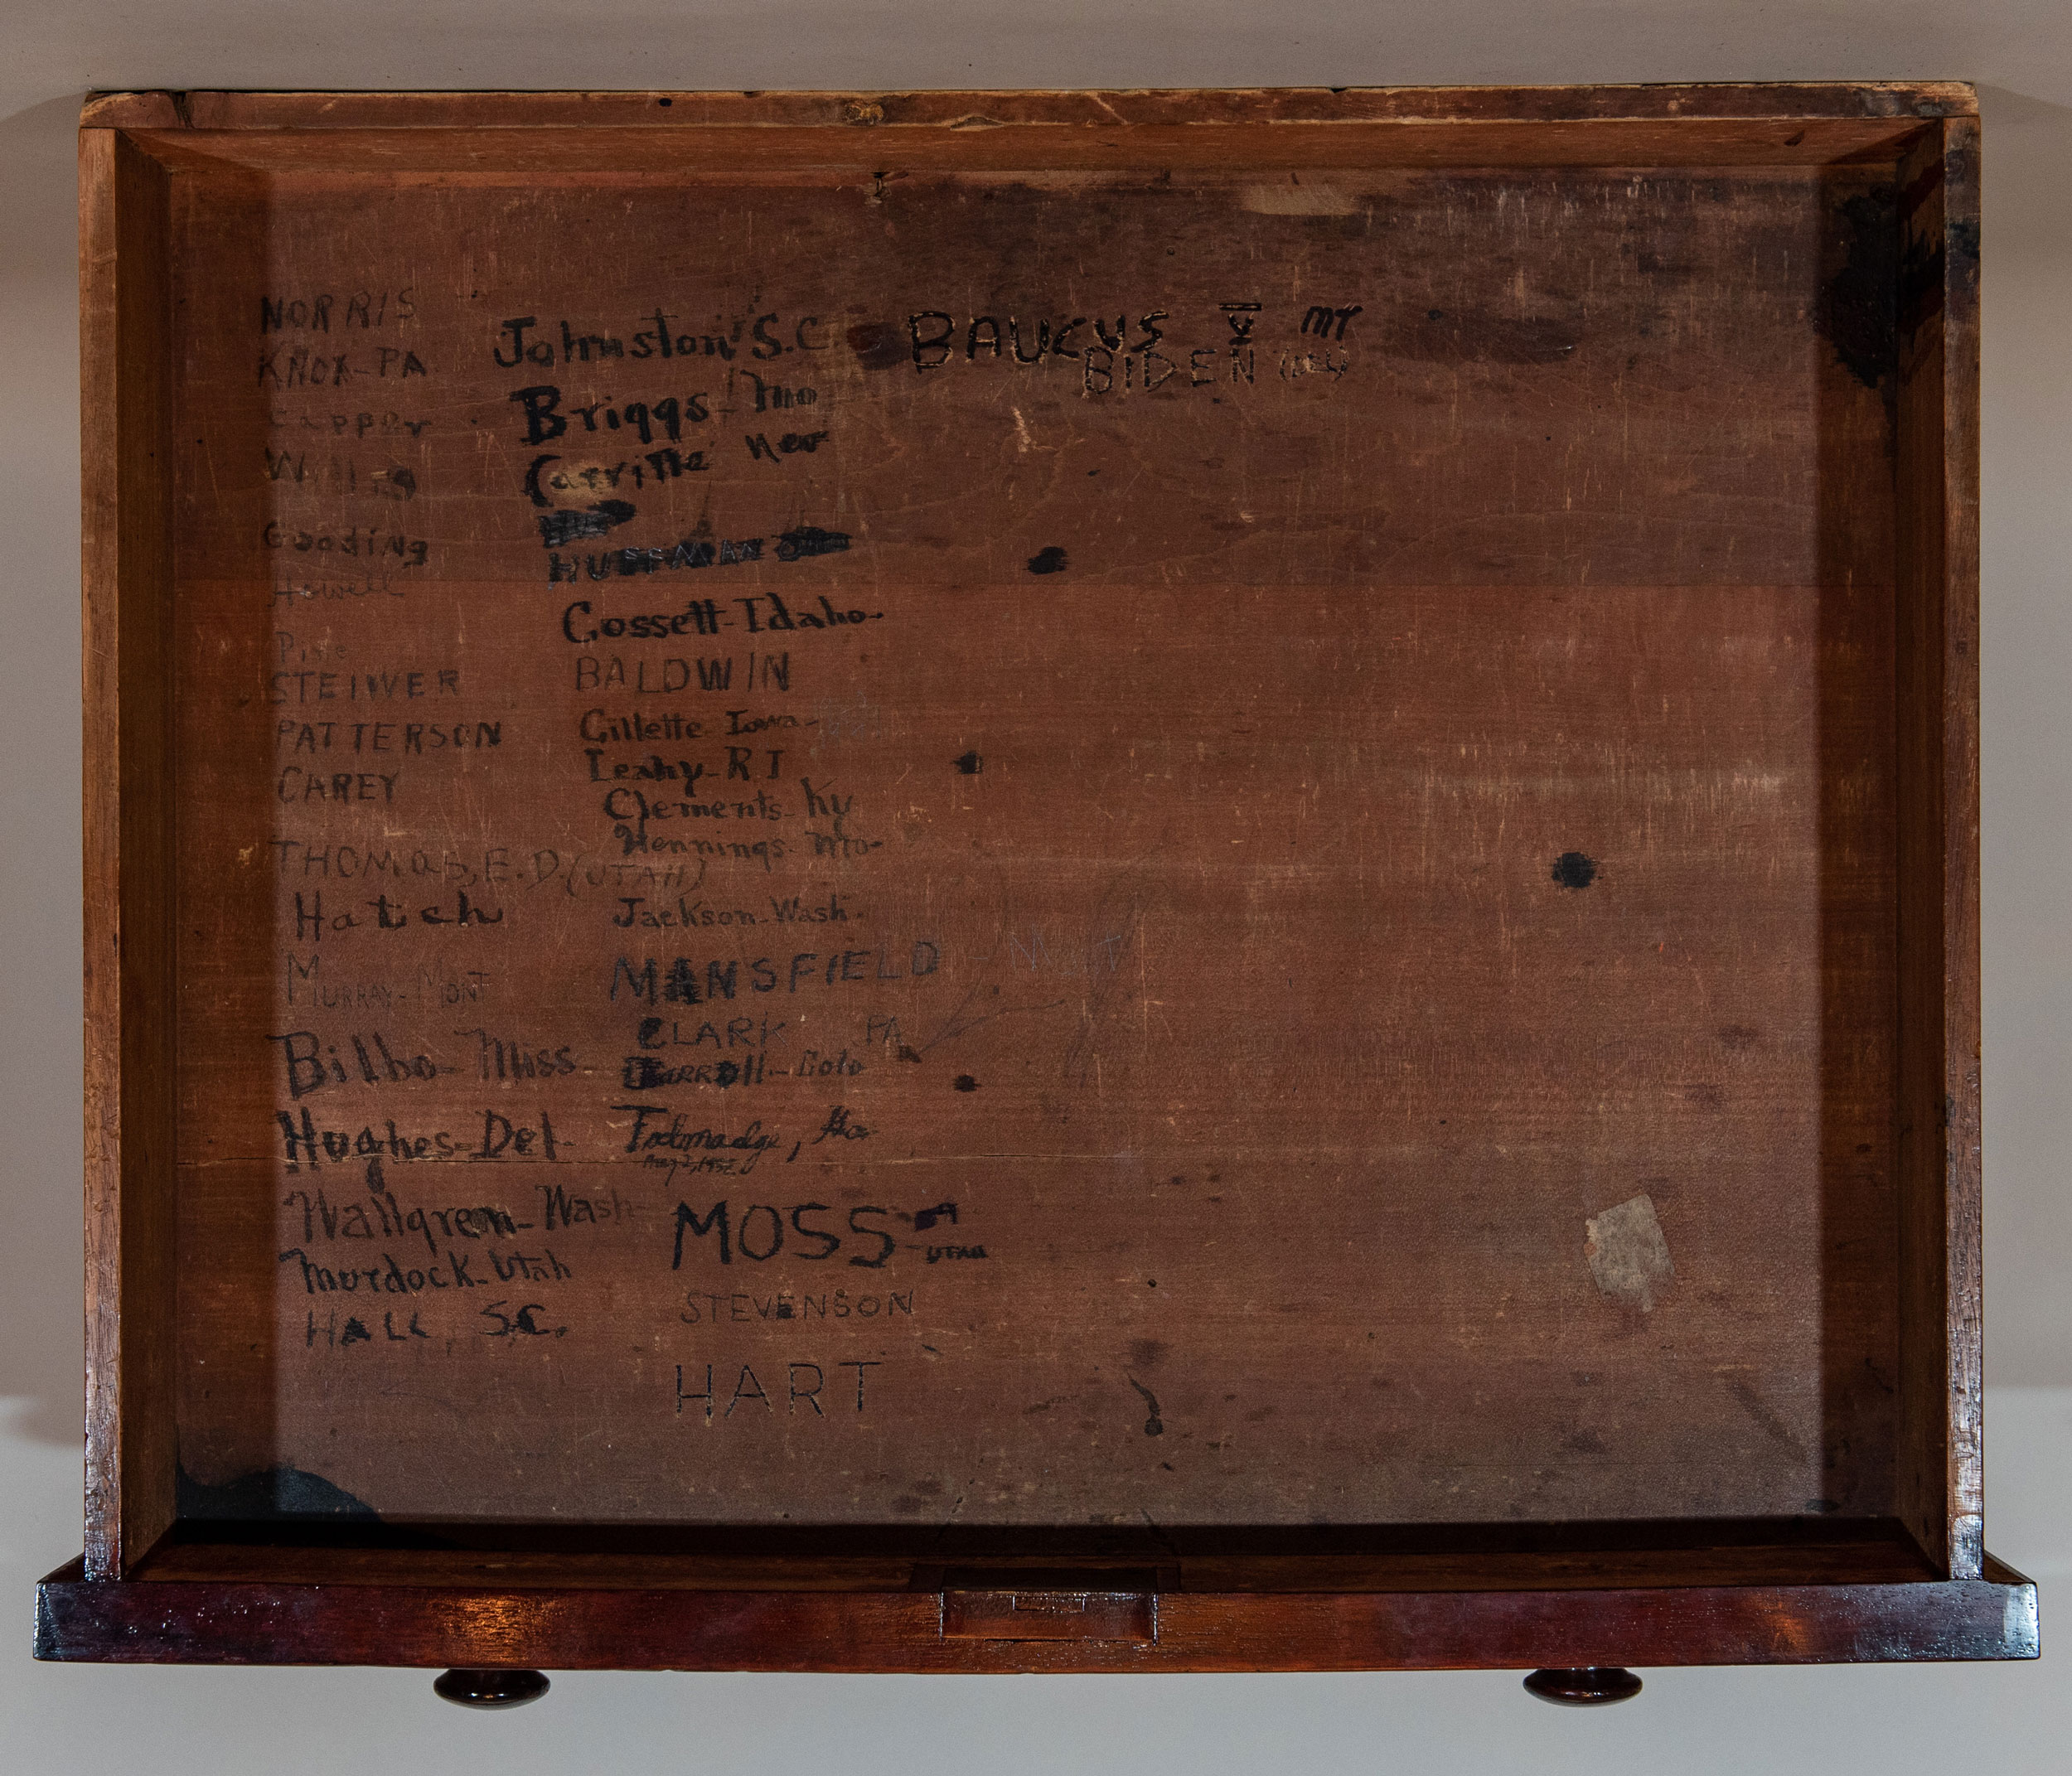 NORRIS
KNOX-PA
Capper
Willis
Gooding
Howell
Pine
STEIWER
PATTERSON
CAREY
THOMAS, E. D. (UTAH)
Hatch
MURRAY-MONT
Bilbo-Miss
Hughes-Del-
Wallgren-Wash-
Murdock-Utah
HALL, S.C.
Johnston S.C
Briggs-Mo
Carville Nev
HUFFMAN O
Gossett-Idaho-
BALDWIN
Gillette Iowa-
Leahy-R I
Clements-Ky
Hennings-Mo-
Jackson-Wash-
MANSFIELD - MONT
CLARK PA
CARROLL-Colo
Talmadge, Ga
MOSS
UTAH
STEVENSON
HART
BAUCUS MT
BIDEN (DEL)